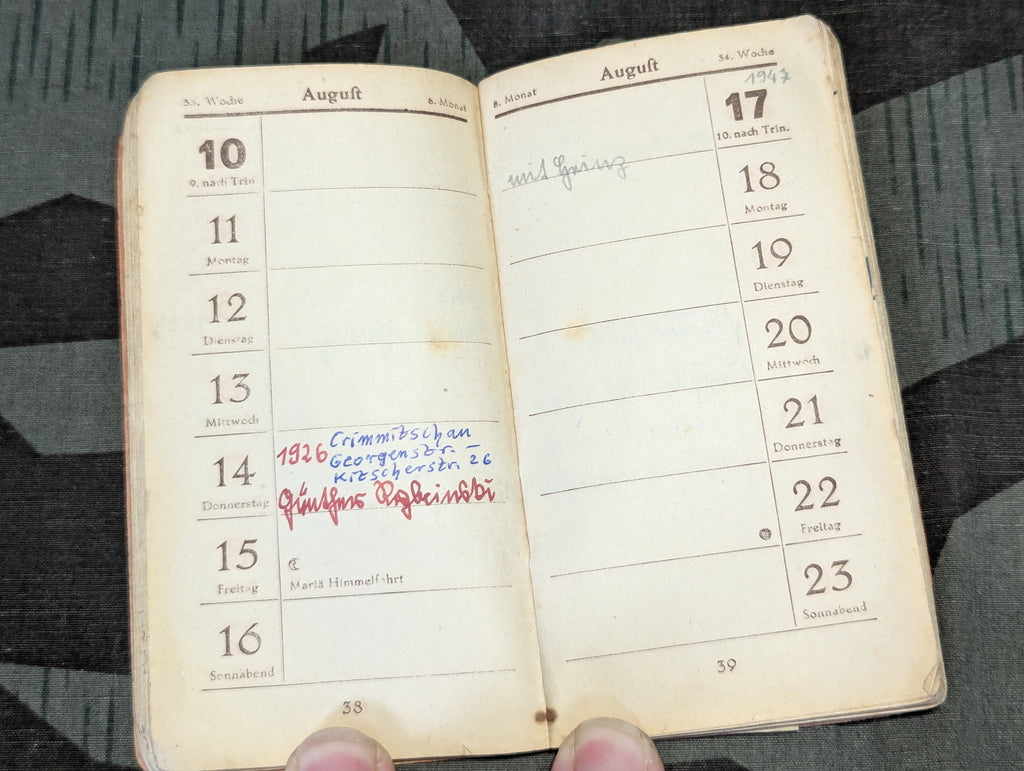 33. Woche August 8. Monat
10
9. nach Trin.
11
Montag
12
Dienstag
13
Mittwoch
14
Donnerstag
1926 Crimmitschau
Georgenstr. –
Kitscherstr. 26
Günther
15
Freitag
Mariä Himmelfahrt
16
Sonnabend
38
8. Monat August 34. Woche
1947
17
10. nach Trin.
mit Heinz
18
Montag
19
Dienstag
20
Mittwoch
21
Donnerstag
22
Freitag
23
Sonnabend
39